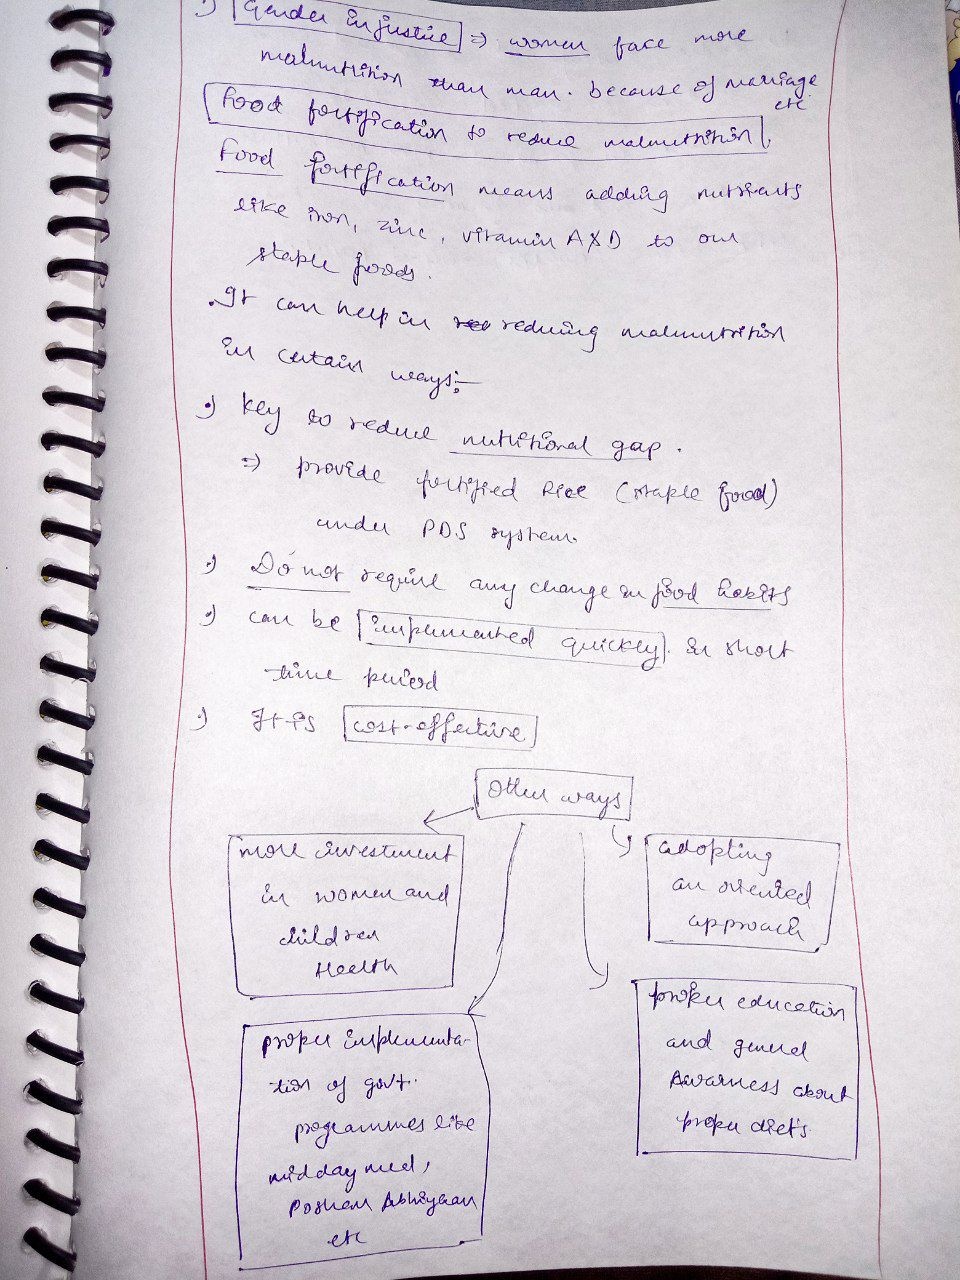 •) Gender injustice ⇒ women face more
malnutrition than man. because of marriage
etc
Food fortification to reduce malnutrition.
Food fortification means adding nutrients
like iron, zinc, vitamin A & D to our
staple foods.
. It can help in reducing malnutrition
in certain ways:-
•) key to reduce nutritional gap.
⇒ provide fortified Rice (staple food)
under PDS system.
•) Do not require any change in food habits
•) can be implemented quickly. in short
time period
•) It is cost-effective
Other ways
more investment
in women and
children
Health
adopting
an oriented
approach
proper implementa-
tion of govt.
programmes like
midday meal,
Poshan Abhiyaan
etc
proper education
and general
Awarness about
proper diets.